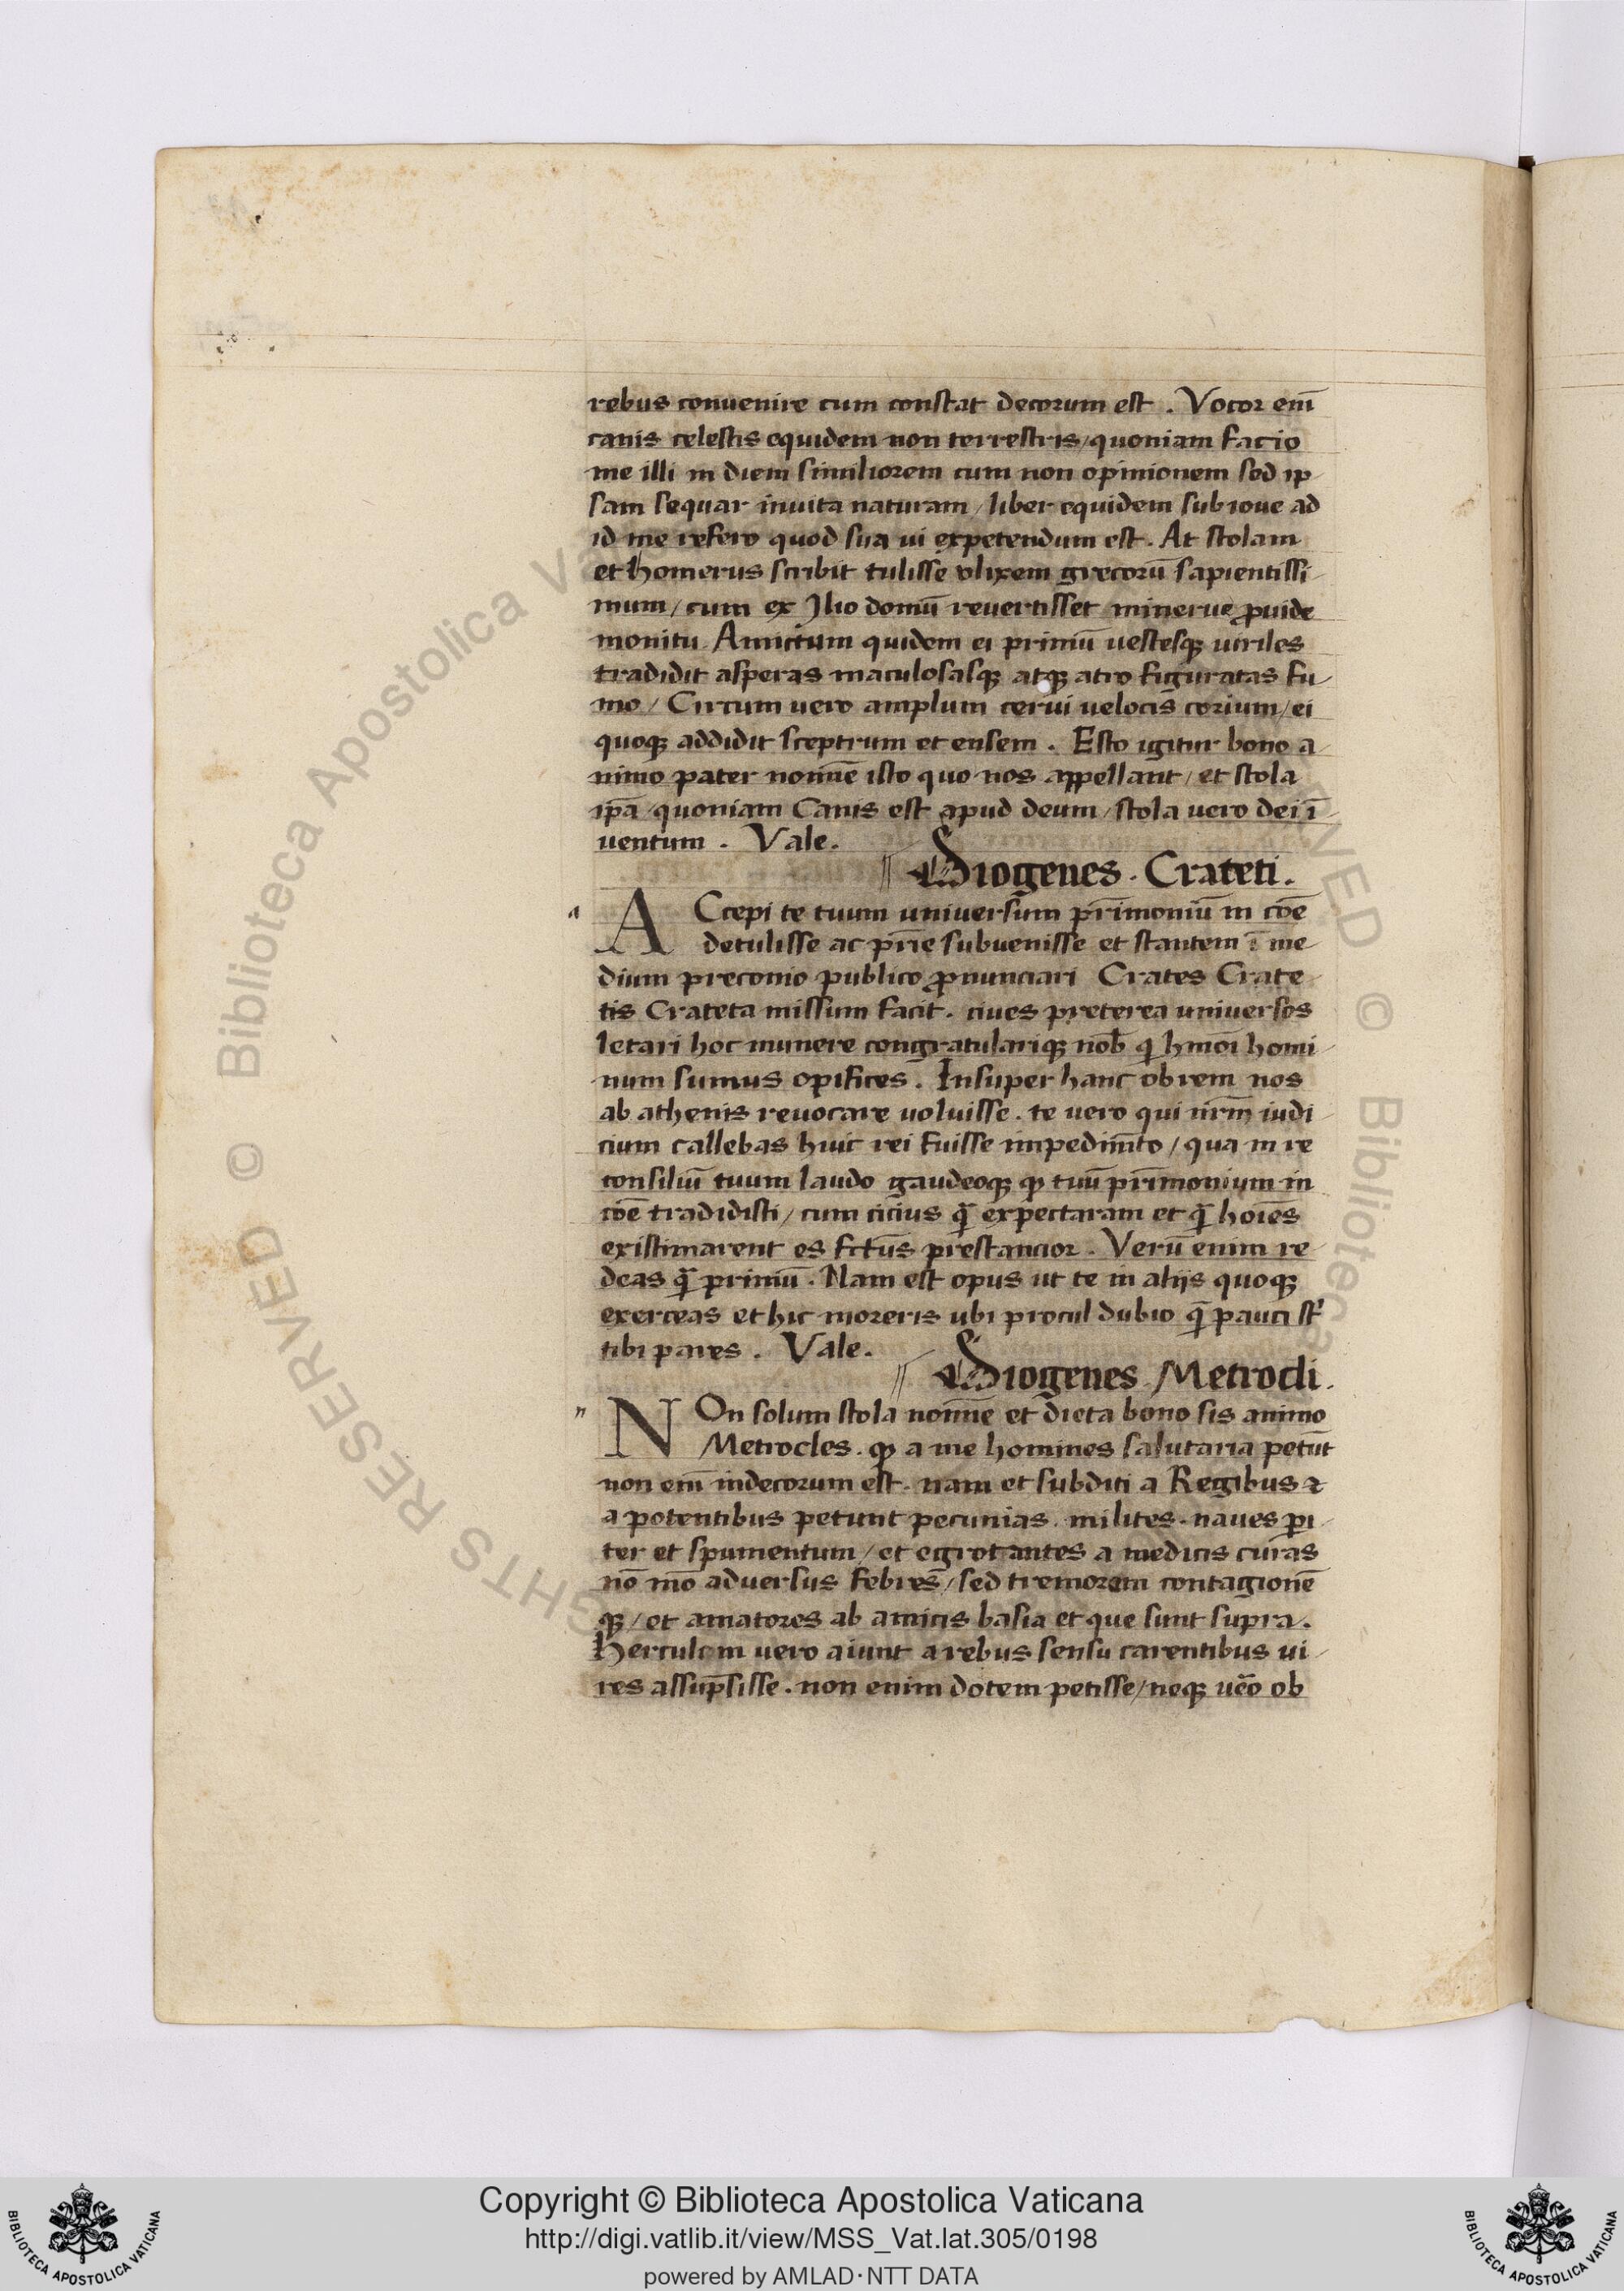 rebus conuenire cum constat decorum est . Vocor em̄
canis celestis equidem non terrestris / quoniam facio
me illi in diem similiorem cum non opinionem sed ip
sam sequar inuita naturam / liber equidem sub ioue ad
id me refero quod sua ui expetendum est . At stolam
et homerus scribit tulisse vlixem grecorū sapientissi
mum / cum ex Ilio domū reuertisset minerue ꝓuide
monitu Amictum quidem ei primū uestesqꝫ uiriles
tradidit asperas maculosasqꝫ atqꝫ atro figuratas fu
mo / Circum uero amplum cerui uelocis corium / ei
quoqꝫ addidit sceptrum et ensem . Esto igitur bono a
nimo pater nomīe isto quo nos appellant / et stola
ip̄a / quoniam Canis est apud deum / stola uero dei ī
uentum . Vale .
Diogenes . Crateti .
a
ACcepi te tuum uniuersum pr̄imoniū in cōe
detulisse ac pr̄ie subuenisse et stantem ī me
dium preconio publico ꝓnunciari Crates Crate
tis Crateta missum facit . ciues preterea uniuersos
letari hoc munere congratulariqꝫ nob̄ qꝫ hm̄oi homi
num sumus opifices . Insuper hanc ob rem nos
ab athenis reuocare uoluisse . te uero qui nr̄m iudi
cium callebas huic rei fuisse impedim̄to / qua in re
consiliū tuum laudo gaudeoqꝫ qꝫ tuū pr̄imonium in
cōe tradidisti / cum cicius q̄ expectaram et q̄ hoīes
existimarent es fctūs prestancior . Verū enim re
deas q̄ primū . Nam est opus ut te in alijs quoqꝫ
exerceas et hic moreris ubi procul dubio q̄ pauci st̄
tibi pares . Vale .
Diogenes Metrocli .
n
NOn solum stola nomīe et dieta bono sis animo
Metrocles . qꝫ a me homines salutaria petūt
non em̄ indecorum est . nam et subditi a Regibus ⁊
a potentibus petunt pecunias . milites . naues p̄i
ter et spumentum / et egrotantes a medicis curas
nō mō aduersus febres / sed tremorem contagionē
qꝫ / et amatores ab amicis basia et que sunt supra .
Herculem uero aiunt a rebus sensu carentibus ui
res assūpsisse . non enim dotem petisse / neqꝫ uēo ob
Copyright © Biblioteca Apostolica Vaticana
http://digi.vatlib.it/view/MSS_Vat.lat.305/0198
powered by AMLAD·NTT DATA
BIBLIOTECA APOSTOLICA VATICANA
BIBLIOTECA APOSTOLICA VATICANA